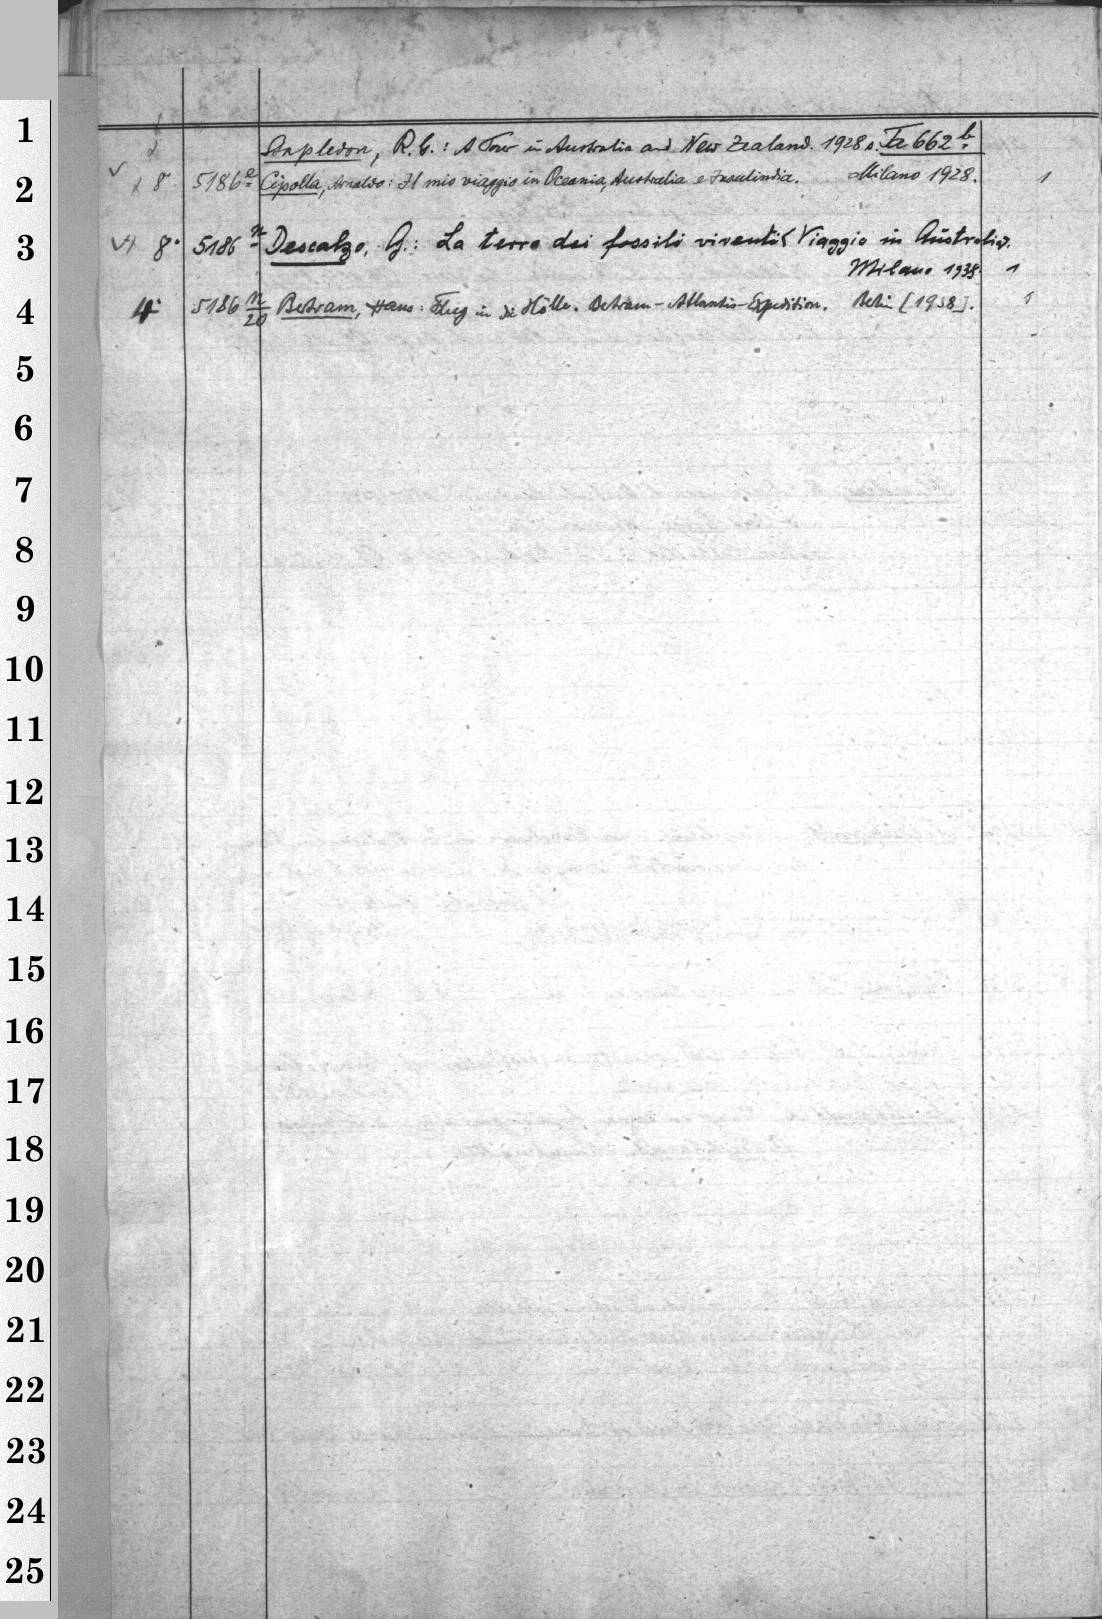 Stapledon, R. G.: A Tour in Australia and New Zealand. 1928 s. Fe 662 b.
1
√ x 8° 5186 e Cipolla, Arnaldo: Il mio viaggio in Oceania, Australia e Insulindia. Milano 1928. 1
2
√x 8° 5186 n Descalzo, G.: La terra dei fossili viventi < Viaggio in Australia>.
3
Milano 1939. 1
4° 5186 n/20 Bertram, Hans: Flug in die Hölle. Bertram-Atlantis-Expedition. Berlin [1938]. 1
4
5
6
7
8
9
10
11
12
13
14
15
16
17
18
19
20
21
22
23
24
25